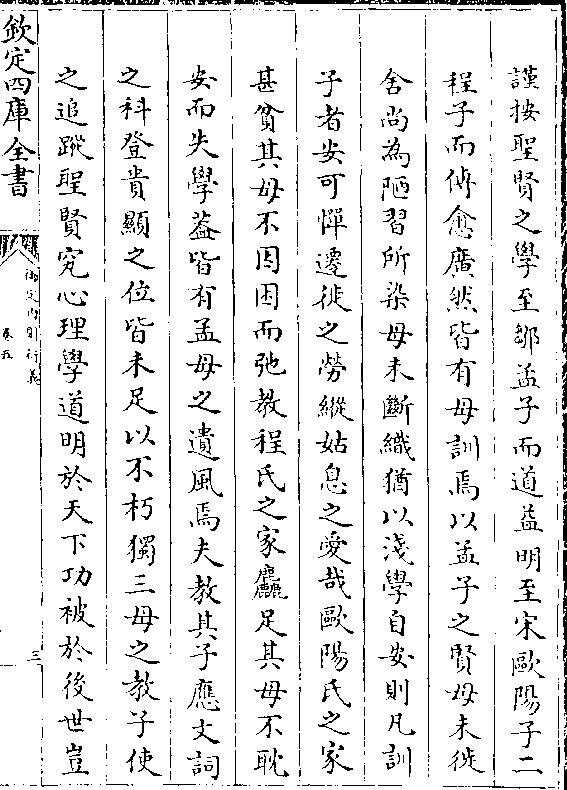 謹按聖賢之學至鄒孟子而道益明至宋歐陽子二
程子而傳愈廣然皆有母訓焉以孟子之賢母未徙
舍尚為陋習所染母未斷織猶以淺學自安則凡訓
子者安可憚遷徙之勞縱姑息之愛哉歐陽氏之家
甚貧其母不因困而弛教程氏之家麤足其母不耽
安而失學葢皆有孟母之遺風焉夫教其子應文詞
之科登貴顯之位皆未足以不朽獨三母之教子使
之追蹤聖賢究心理學道明於天下功被於後世豈
欽定四庫全書
御定內則衍義
卷五
三